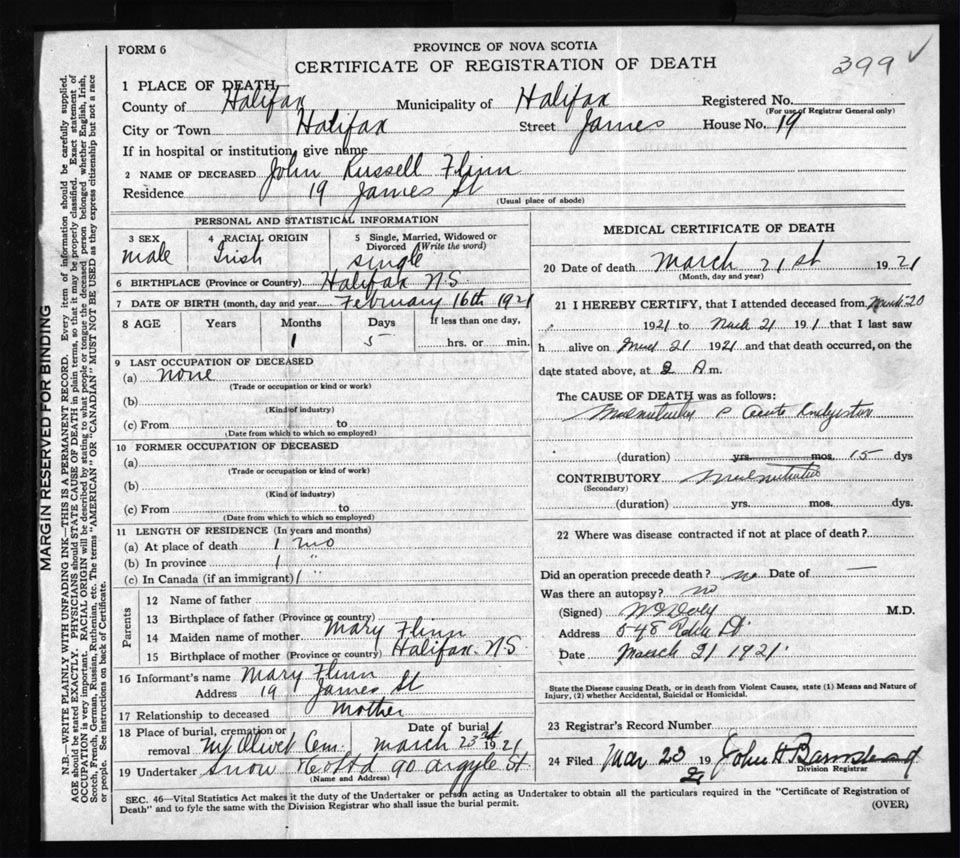 FORM 6
PROVINCE OF NOVA SCOTIA
CERTIFICATE OF REGISTRATION OF DEATH
399 ✓
1 PLACE OF DEATH,
County of Halifax Municipality of Halifax Registered No.
(For use of Registrar General only)
City or Town Halifax Street James House No. 19
If in hospital or institution, give name
2 NAME OF DECEASED John Russell Flinn
Residence 19 James St
(Usual place of abode)
PERSONAL AND STATISTICAL INFORMATION
3 SEX 4 RACIAL ORIGIN 5 Single, Married, Widowed or Divorced (Write the word)
male Irish single
6 BIRTHPLACE (Province or Country) Halifax N.S.
7 DATE OF BIRTH (month, day and year) February 16th 1921
8 AGE Years Months Days If less than one day,
1 5 hrs. or min.
9 LAST OCCUPATION OF DECEASED
(a) none
(Trade or occupation or kind or work)
(b)
(Kind of industry)
(c) From to
(Date from which to which so employed)
10 FORMER OCCUPATION OF DECEASED
(a)
(Trade or occupation or kind of work)
(b)
(Kind of industry)
(c) From to
(Date from which to which so employed)
11 LENGTH OF RESIDENCE (In years and months)
(a) At place of death 1 mo
(b) In province 1 "
(c) In Canada (if an immigrant) 1
Parents
12 Name of father
13 Birthplace of father (Province or country)
14 Maiden name of mother Mary Flinn
15 Birthplace of mother (Province or country) Halifax N.S
16 Informant's name Mary Flinn
Address 19 James St
17 Relationship to deceased Mother
18 Place of burial, cremation or removal Mt Olivet Cem. Date of burial March 23rd 1921
19 Undertaker Snow & Co Ltd 90 Argyle St
(Name and Address)
MEDICAL CERTIFICATE OF DEATH
20 Date of death March 21st 1921
(Month, day and year)
21 I HEREBY CERTIFY, that I attended deceased from March 20
1921 to March 21 191 that I last saw
h alive on March 21 1921 and that death occurred, on the
date stated above, at 2 A m.
The CAUSE OF DEATH was as follows:
Acute Indigestion
(duration) yrs. mos. 15 dys
CONTRIBUTORY Malnutrition
(Secondary)
(duration) yrs. mos. dys.
22 Where was disease contracted if not at place of death?
Did an operation precede death? no Date of —
Was there an autopsy? no
(Signed) M.D.
Address
Date March 21 1921
State the Disease causing Death, or in death from Violent Causes, state (1) Means and Nature of
Injury, (2) whether Accidental, Suicidal or Homicidal.
23 Registrar's Record Number
24 Filed Mar 23 19 2 John H
Division Registrar
SEC. 46—Vital Statistics Act makes it the duty of the Undertaker or person acting as Undertaker to obtain all the particulars required in the "Certificate of Registration of
Death" and to fyle the same with the Division Registrar who shall issue the burial permit.
(OVER)
MARGIN RESERVED FOR BINDING
N.B.—WRITE PLAINLY WITH UNFADING INK—THIS IS A PERMANENT RECORD. Every item of information should be carefully supplied.
AGE should be stated EXACTLY. PHYSICIANS should STATE CAUSE OF DEATH in plain terms, so that it may be properly classified. Exact statement of
OCCUPATION is very important. RACIAL ORIGIN will be described by stating to what people or tongue the deceased person belonged whether English, Irish,
Scotch, French, German, Russian, Ruthenian, etc. The terms "AMERICAN" OR "CANADIAN" MUST NOT BE USED as they express citizenship but not a race
or people. See instructions on back of Certificate.